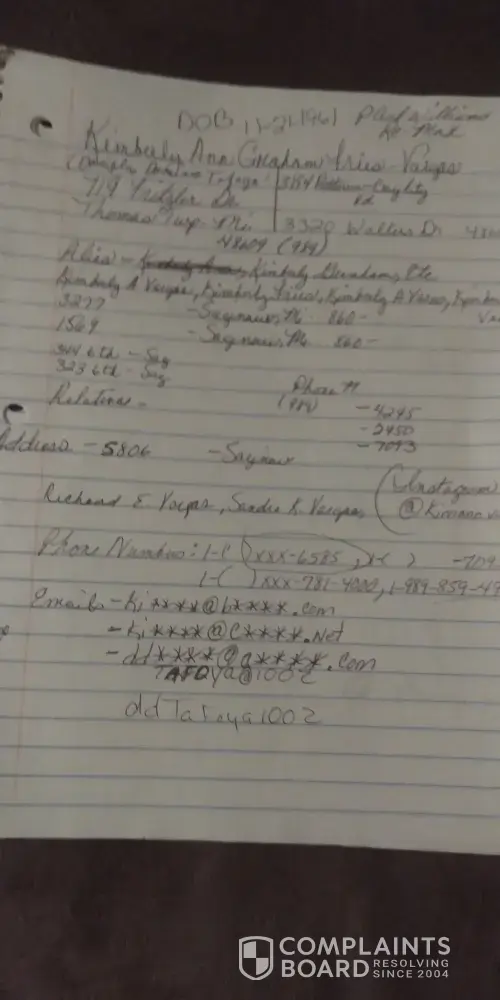 DOB 11-21-1961 Paul Williams
Kimberly Ann Graham Frias-Vargas
719 Fritzler Dr
Thomas Twp. Mi 3320 Walters Dr
48609 (989)
Alias - Kimberly Graham, Etc
Kimberly A Vargas, Kimberly Frias, Kimberly A Varas,
3277 - Saginaw, Mi 860-
1569 - Saginaw, Mi 860-
344 6th - Sag
323 6th - Sag
Phone #
Relatives - (989) -4295
-2450
-7093
Address - 5806 - Saginaw
Richard E Vargas, Sandra K Vargas, (Instagram
Phone Number: 1-( )xxx-6585, 1-( ) -709
1-( )xxx-781-4000, 1-989-859-49
Emails - Ki****@b****.com
- Ki****@C****.Net
- dd****@g****.com
TAFOya@1002
ddTafoya1002
COMPLAINTS
BOARD RESOLVING
SINCE 2004